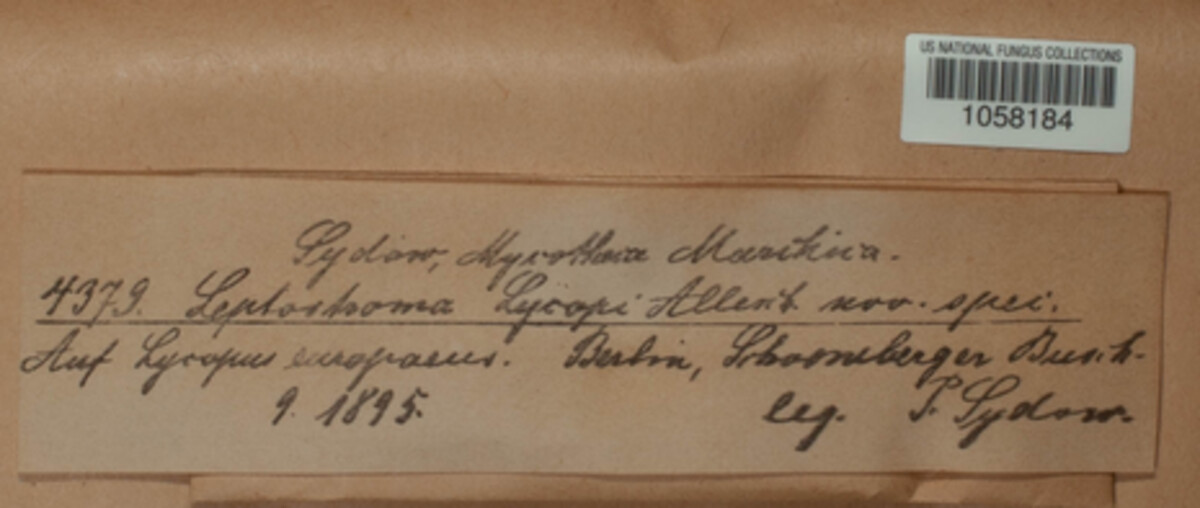 US NATIONAL FUNGUS COLLECTIONS
1058184
Sydow, Mycotheca Marchica.
4379. Leptostroma Lycopi Allesch. nov. spei.
Auf Lycopus europaeus. Berlin, Schoeneberger Busch.
9. 1895. leg. P. Sydow.